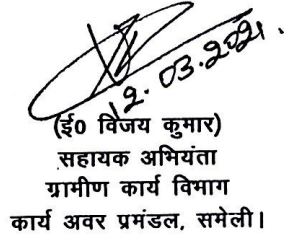 12.03.2021.
(ई0 विजय कुमार)
सहायक अभियंता
ग्रामीण कार्य विभाग
कार्य अवर प्रमंडल, समेली।